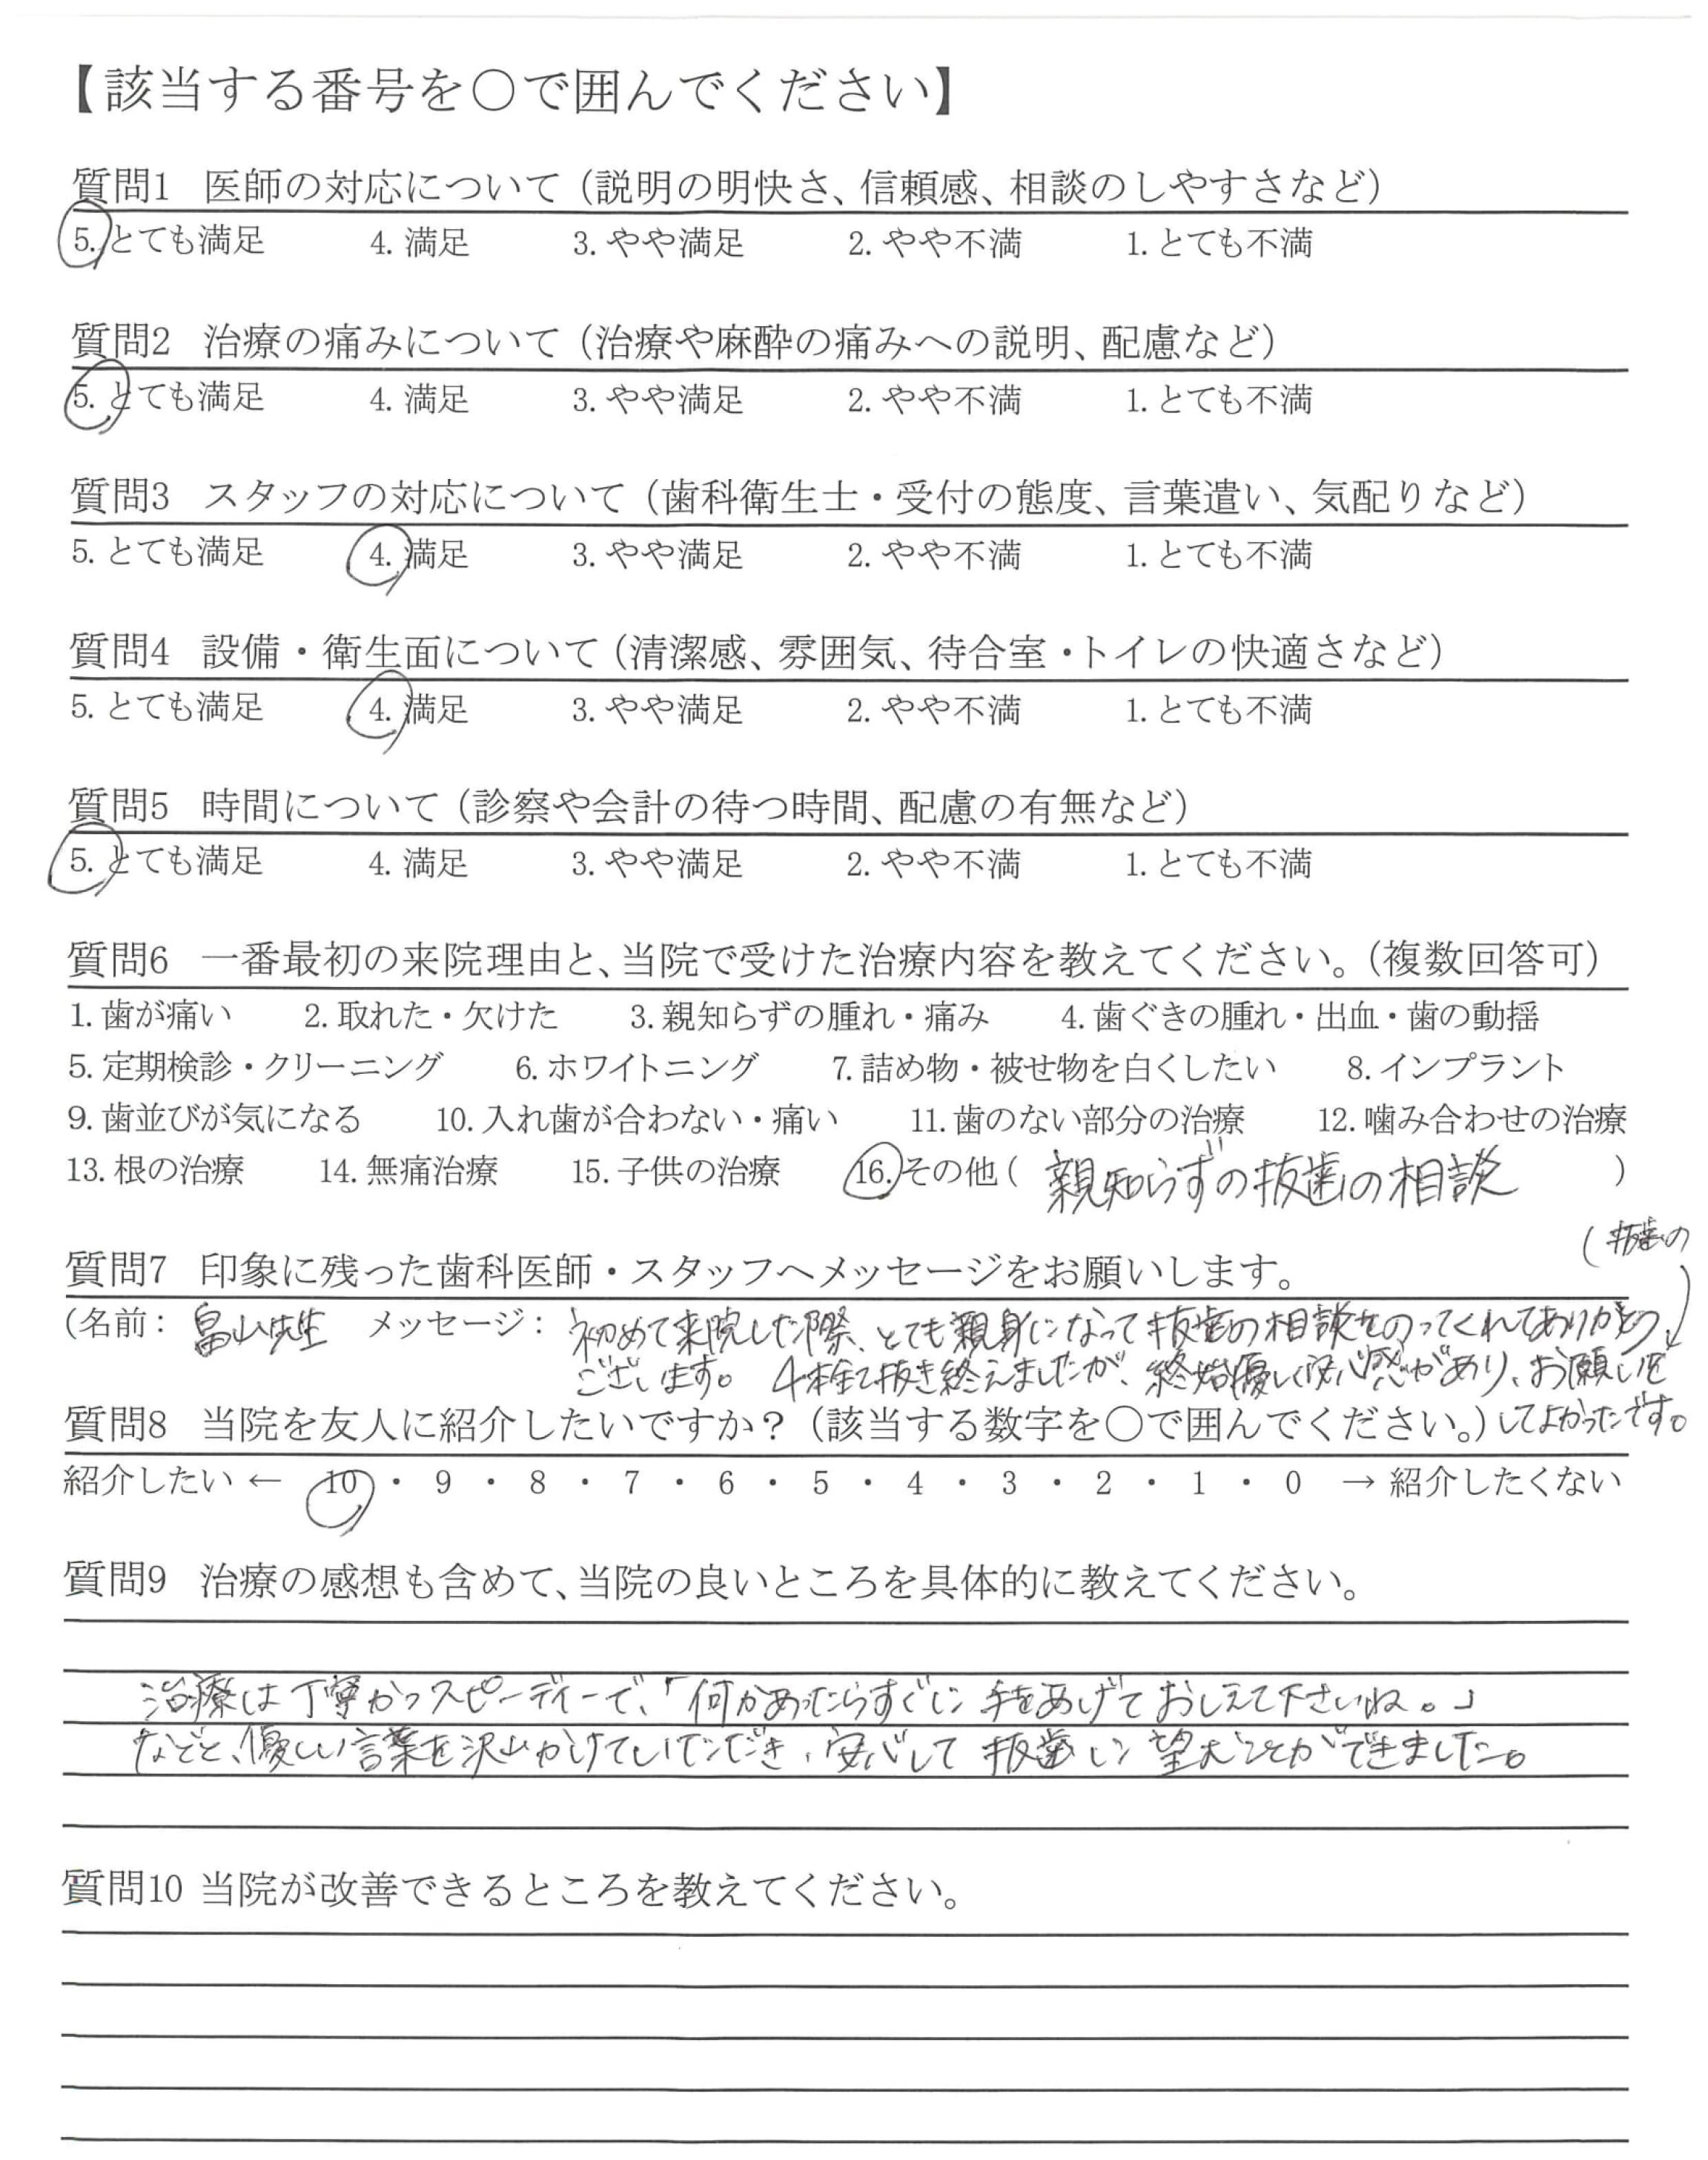 【該当する番号を○で囲んでください】
質問1 医師の対応について（説明の明快さ、信頼感、相談のしやすさなど）
5. とても満足 4. 満足 3. やや満足 2. やや不満 1. とても不満
質問2 治療の痛みについて（治療や麻酔の痛みへの説明、配慮など）
5. とても満足 4. 満足 3. やや満足 2. やや不満 1. とても不満
質問3 スタッフの対応について（歯科衛生士・受付の態度、言葉遣い、気配りなど）
5. とても満足 4. 満足 3. やや満足 2. やや不満 1. とても不満
質問4 設備・衛生面について（清潔感、雰囲気、待合室・トイレの快適さなど）
5. とても満足 4. 満足 3. やや満足 2. やや不満 1. とても不満
質問5 時間について（診察や会計の待つ時間、配慮の有無など）
5. とても満足 4. 満足 3. やや満足 2. やや不満 1. とても不満
質問6 一番最初の来院理由と、当院で受けた治療内容を教えてください。（複数回答可）
1. 歯が痛い 2. 取れた・欠けた 3. 親知らずの腫れ・痛み 4. 歯ぐきの腫れ・出血・歯の動揺
5. 定期検診・クリーニング 6. ホワイトニング 7. 詰め物・被せ物を白くしたい 8. インプラント
9. 歯並びが気になる 10. 入れ歯が合わない・痛い 11. 歯のない部分の治療 12. 噛み合わせの治療
13. 根の治療 14. 無痛治療 15. 子供の治療 16. その他（ 親知らずの抜歯の相談 ）
（抜歯の
質問7 印象に残った歯科医師・スタッフへメッセージをお願いします。
（名前： 畠山先生 メッセージ： 初めて来院した際、とても親身になって抜歯の相談をのってくれてありがとう
ございます。 4本全て抜き終えましたが、終始優しく安心感があり、お願いを
質問8 当院を友人に紹介したいですか？（該当する数字を○で囲んでください。） してよかったです。
紹介したい ← 10 ・ 9 ・ 8 ・ 7 ・ 6 ・ 5 ・ 4 ・ 3 ・ 2 ・ 1 ・ 0 → 紹介したくない
質問9 治療の感想も含めて、当院の良いところを具体的に教えてください。
治療は丁寧かつスピーディーで、「何かあったらすぐに手をあげておしえて下さいね。」
などと、優しい言葉を沢山かけていただき、安心して抜歯に望むことができました。
質問10 当院が改善できるところを教えてください。